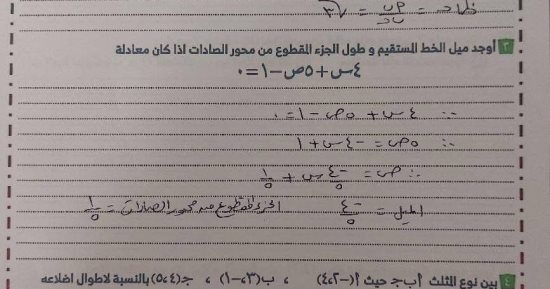 ظا هـ = = ٣√
٣ أوجد ميل الخط المستقيم و طول الجزء المقطوع من محور الصادات اذا كان معادلة
٤س + ٥ص - ١ = ٠
∴ ٤س + ٥ص - ١ = ٠
∴ ٥ص = -٤س + ١
∴ ص = -٤/٥ س + ١/٥
الميل = -٤/٥ الجزء المقطوع من محور الصادات = ١/٥
٤ بين نوع المثلث أ ب ج حيث أ(-٤،٢) ، ب(٣،-١) ، ج(٥،٤) بالنسبة لاطوال اضلاعه